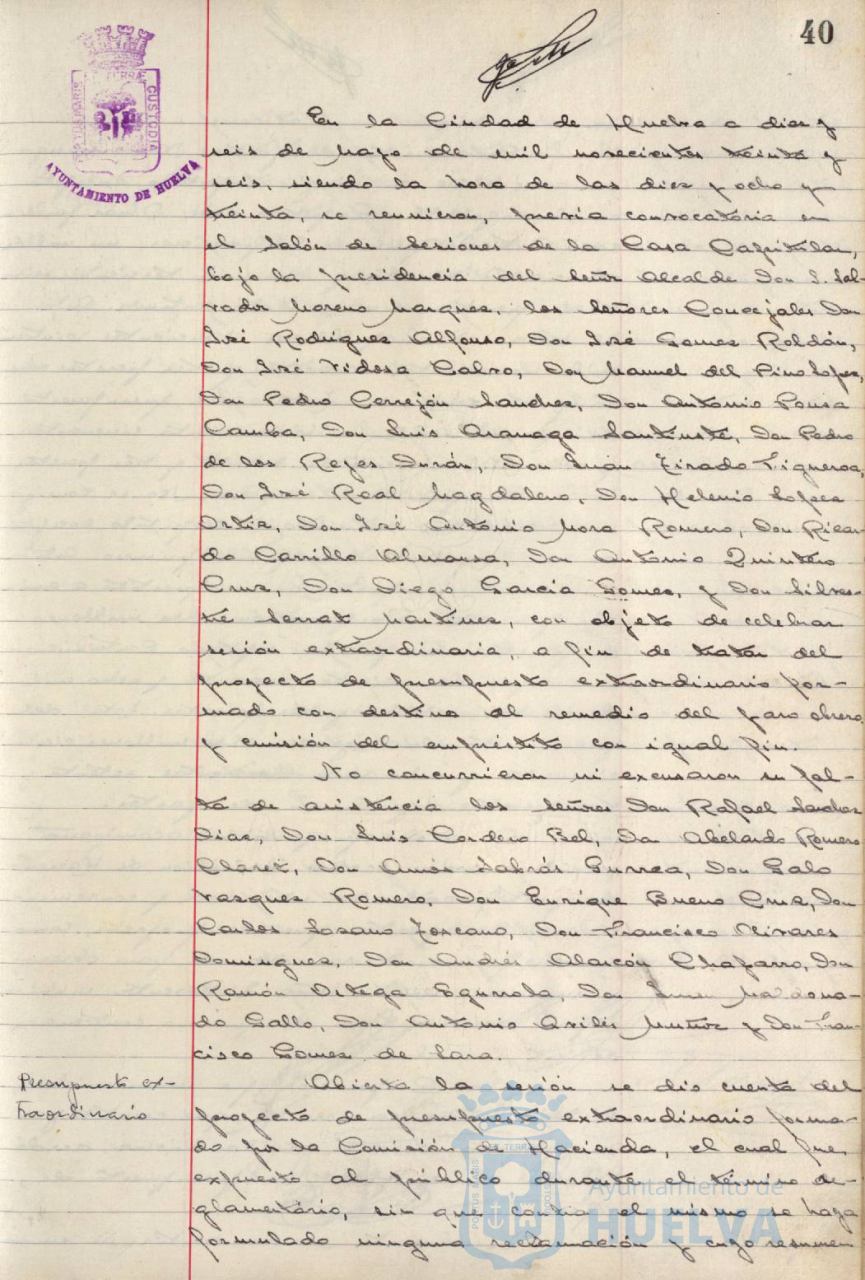 40
PORTUS MARIS ET TERRAE CUSTODIA
AYUNTAMIENTO DE HUELVA
En la Ciudad de Huelva a diez y
seis de mayo de mil novecientos treinta y
seis, siendo la hora de las diez y ocho y
treinta, se reunieron, previa convocatoria en
el Salón de Sesiones de la Casa Capitular,
bajo la presidencia del Señor Alcalde Don S. Sal-
vador Moreno Marquez, los Señores Concejales Don
José Rodriguez Alfonso, Don José Gomez Roldán,
Don José Vidosa Calvo, Don Manuel del Pino Lopez,
Don Pedro Cerrejón Sanchez, Don Antonio Pousa
Camba, Don Luis Aramaga Santiuste, Don Pedro
de los Reyes Durán, Don Juan Tirado Figueroa,
Don José Real Magdaleno, Don Helenio Lopez
Ortiz, Don José Antonio Mora Romero, Don Ricar-
do Carrillo Almansa, Don Antonio Quintero
Cruz, Don Diego García Gomez, y Don Silves-
tre Serrat Martinez, con objeto de celebrar
sesión extraordinaria, a fin de tratar del
proyecto de presupuesto extraordinario for-
mado con destino al remedio del paro obrero
y emisión del empréstito con igual fin.
No concurrieron ni excusaron su fal-
ta de asistencia los Señores Don Rafael Sanchez
Diaz, Don Luis Cordero Bel, Don Abelardo Romero
Claret, Don Amós Sabrás Gurrea, Don Galo
Vazquez Romero, Don Enrique Bueno Cruz, Don
Carlos Lozano Toscano, Don Francisco Olivares
Dominguez, Don Andrés Alarcón Chaparro, Don
Ramón Ortega Egurrola, Don Maldona-
do Gallo, Don Antonio Avilés Muñoz y Don Fran-
cisco Gomez de Lara.
Presupuesto ex-
traordinario
Abierta la sesión se dio cuenta del
proyecto de presupuesto extraordinario forma-
do por la Comisión de Hacienda, el cual fue
expuesto al público durante el término re-
glamentario, sin que contra el mismo se haya
formulado ninguna reclamación y cuyo resumen
Ayuntamiento de
HUELVA